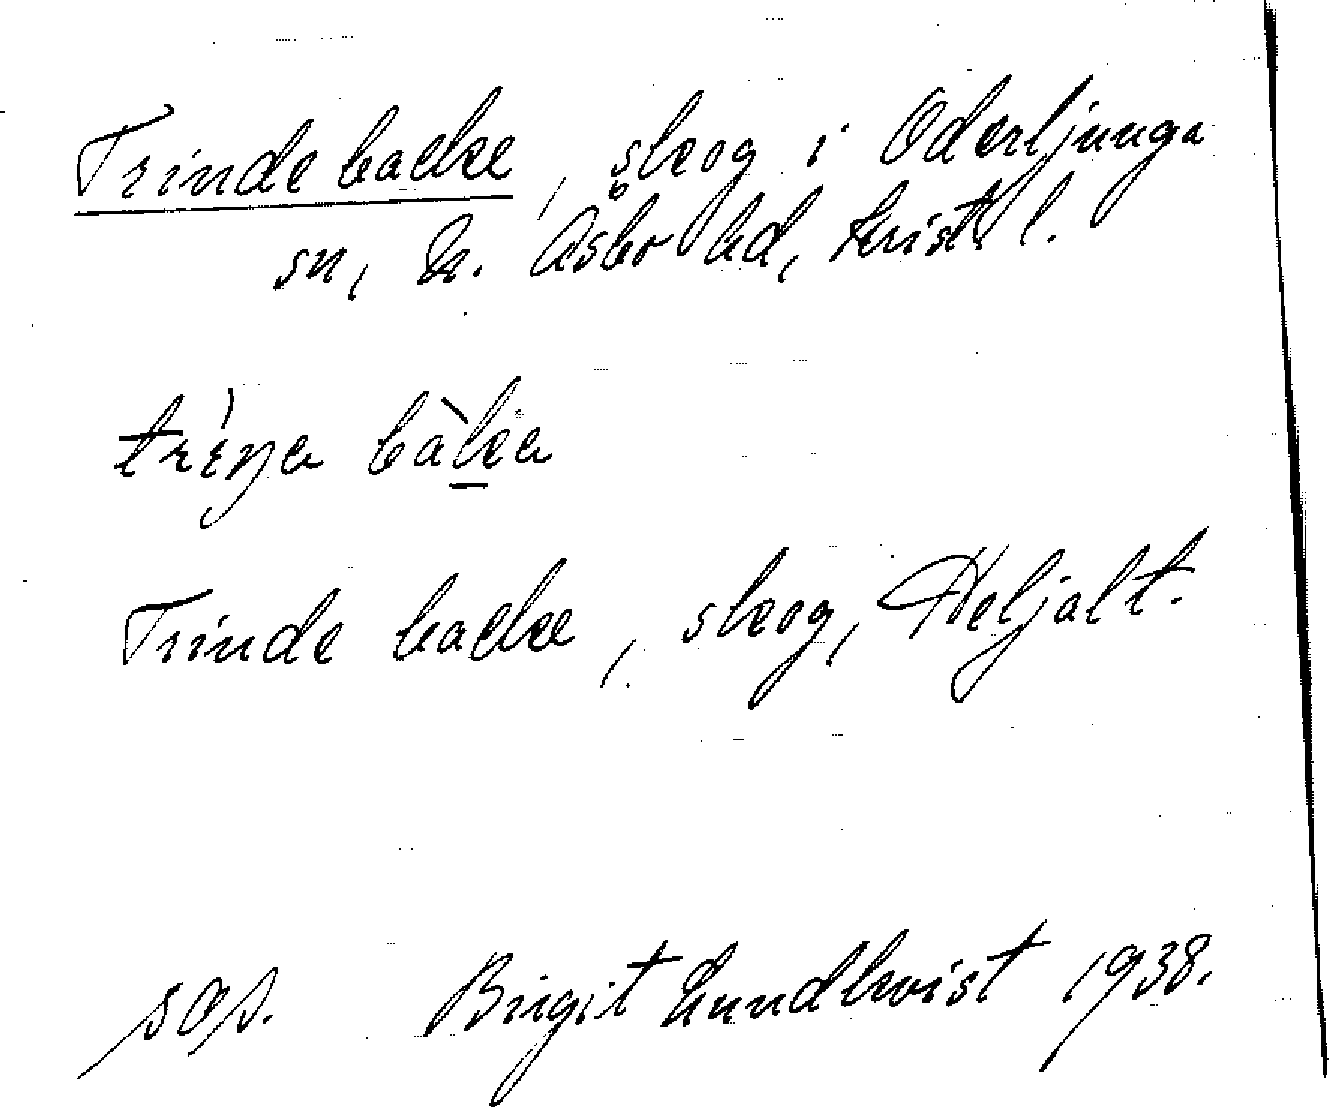 Trinde backe, skog i Oderljunga
sn, N. Åsbo hd, Krist. l.
tríŋa bàka
Trinde backe, skog, Heljalt.
sas. Birgit Lundkvist 1938.